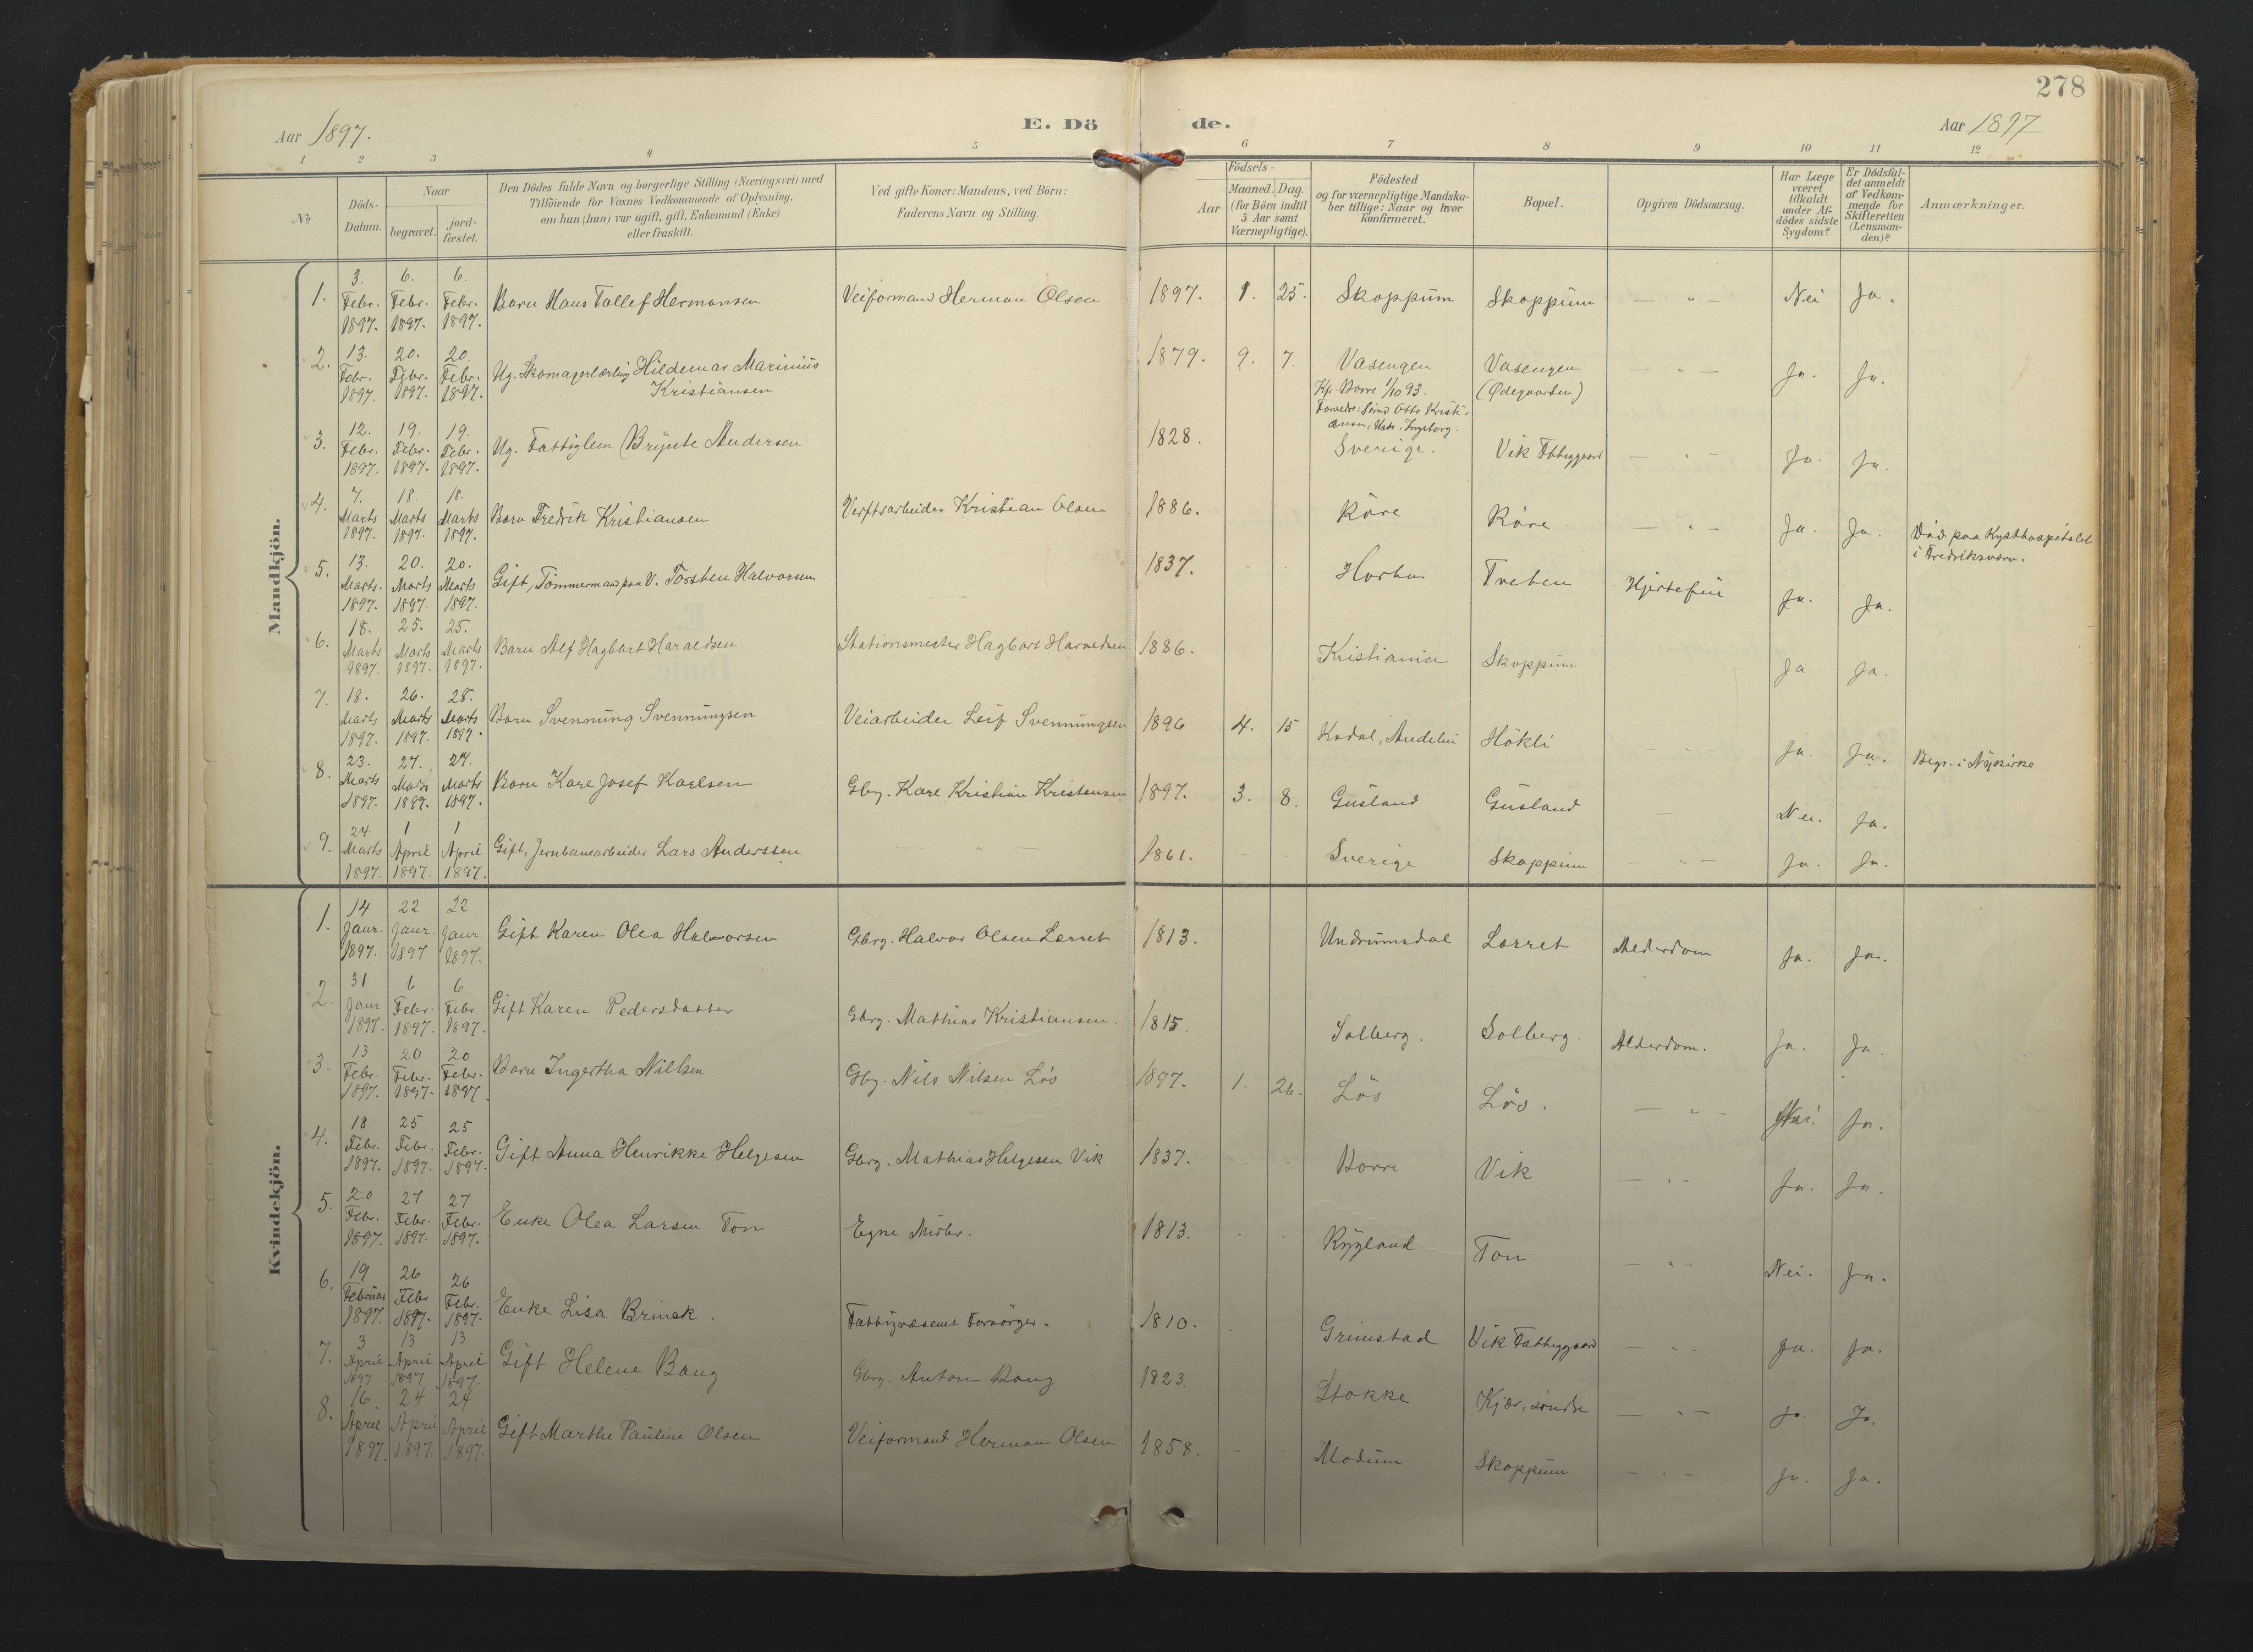 278
Aar 1897.
E. Dö de.
Aar 1897
1 2 3 4 5 6 7 8 9 10 11 12
No
Döds-
Datum.
Naar
begravet.
jord-
fæstet.
Den Dödes fulde Navn og borgerlige Stilling (Næringsvei) med
Tilföiende for Voxnes Vedkommende af Oplysning,
om han (hun) var ugift, gift, Enkemand (Enke)
eller fraskilt.
Ved gifte Koner: Mandens, ved Börn:
Faderens Navn og Stilling.
Födsels-
Aar
Maaned. Dag.
(for Börn indtil
5 Aar samt
Værnepligtige).
Födested
og for værnepligtige Mandska-
ber tillige: Naar og hvor
Konfirmeret.
Bopæl.
Opgiven Dödsaarsag.
Har Læge
været
tilkaldt
under Af-
dödes sidste
Sygdom?
Er Dödsfal-
det anmeldt
af Vedkom-
mende for
Skifteretten
(Lensman-
den)?
Anmærkninger.
Mandkjön.
1. 3. Febr. 1897. 6. Febr. 1897. 6. Febr. 1897. Barn Hans Tollef Hermansen Veiformand Herman Olsen 1897. 1. 25. Skoppum Skoppum — " — Nei Ja.
2. 13. Febr. 1897. 20. Febr. 1897. 20. Febr. 1897. Ug. Skomagerlærling Hildemar Marinius
Kristiansen 1879. 9. 7. Vasengen Vasengen — " — Ja. Ja.
Kf. Borre 1/10 93. (Ødegaarden)
Forældre: Otto Kristi-
ansen, Ingeborg.
3. 12. Febr. 1897. 19. Febr. 1897. 19. Febr. 1897. Ug. Fattiglem Brynte Andersen 1828. Sverige. Vik Fattiggaard — " — Ja. Ja.
4. 7. Marts 1897. 18. Marts 1897. 18. Marts 1897. Barn Fredrik Kristiansen Verftsarbeider Kristian Olsen 1886. Röre Röre — " — Ja. Ja. Död paa Kysthospitalet
i Fredriksværn.
5. 13. Marts. 1897. 20. Marts 1897. 20. Marts 1897. Gift, Tömmermand paa V. Torsten Halvorsen 1837. Horten Tveten Hjertefeil Ja. Ja.
6. 18. Marts 1897. 25. Marts 1897. 25. Marts 1897. Barn Alf Hagbart Haraldsen Stationsmester Hagbart Haraldsen 1886. Kristiania Skoppum Ja. Ja.
7. 18. Marts 1897. 26. Marts 1897. 28. Marts 1897. Barn Svennung Svennungsen Veiarbeider Leif Svennungsen 1896 4. 15 Kodal, Andebu Hökli — " — Ja. Ja. Begr. i Nykirke
8. 23. Marts 1897. 27. Marts 1897. 27. Marts 1897. Barn Karl Josef Karlsen Gbrg. Karl Kristian Kristensen 1897. 3. 8. Gusland Gusland — Nei. Ja.
9. 24 Marts 1897. 1 April 1897. 1 April 1897. Gift, Jernbanearbeider Lars Anderssen — " — 1861. Sverige Skoppum — " — Ja. Ja.
Kvindekjön.
1. 14 Janr. 1897. 22 Janr. 1897 22 Janr. 1897. Gift Karen Olea Halvorsen Gbrg. Halvor Olsen Lørret 1813. Undrumsdal Lørret Alderdom Ja. Ja.
2. 31 Janr 1897. 6 Febr. 1897. 6 Febr 1897. Gift Karen Pedersdatter Gbrg. Mathias Kristiansen. 1815. Solberg. Solberg. Alderdom. Ja. Ja.
3. 13 Febr. 1897. 20 Febr. 1897. 20 Febr. 1897. Barn Ingertha Nillsen Gbg. Nils Nilsen Lös 1897. 1. 26. Lös Lös. — " — Nei! Ja.
4. 18 Febr. 1897. 25 Febr. 1897. 25 Febr. 1897. Gift Anna Henrikke Helgesen Gbrg. Mathias Helgesen Vik 1837. Borre Vik — " — Ja. Ja.
5. 20 Febr. 1897. 27 Febr. 1897. 27 Febr. 1897. Enke Olea Larsen Ton Egne Midler. 1813. Rygland Ton — " — Nei. Ja.
6. 19 Februar 1897. 26 Febr 1897. 26 Febr. 1897. Enke Lisa Brinck. Fattigvæsenet Forsörger. 1810. Grimstad Vik Fattiggaard — " — Ja. Ja.
7. 3 April 1897 13 April 1897. 13 April 1897. Gift Helene Bang Gbrg. Anton Bang 1823. Stokke Kjær, söndre — " — Ja. Ja.
8. 16. April 1897. 24 April 1897 24 April 1897. Gift Marthe Pauline Olsen Veiformand Herman Olsen 1858. Modum Skoppum — " — Ja. Ja.